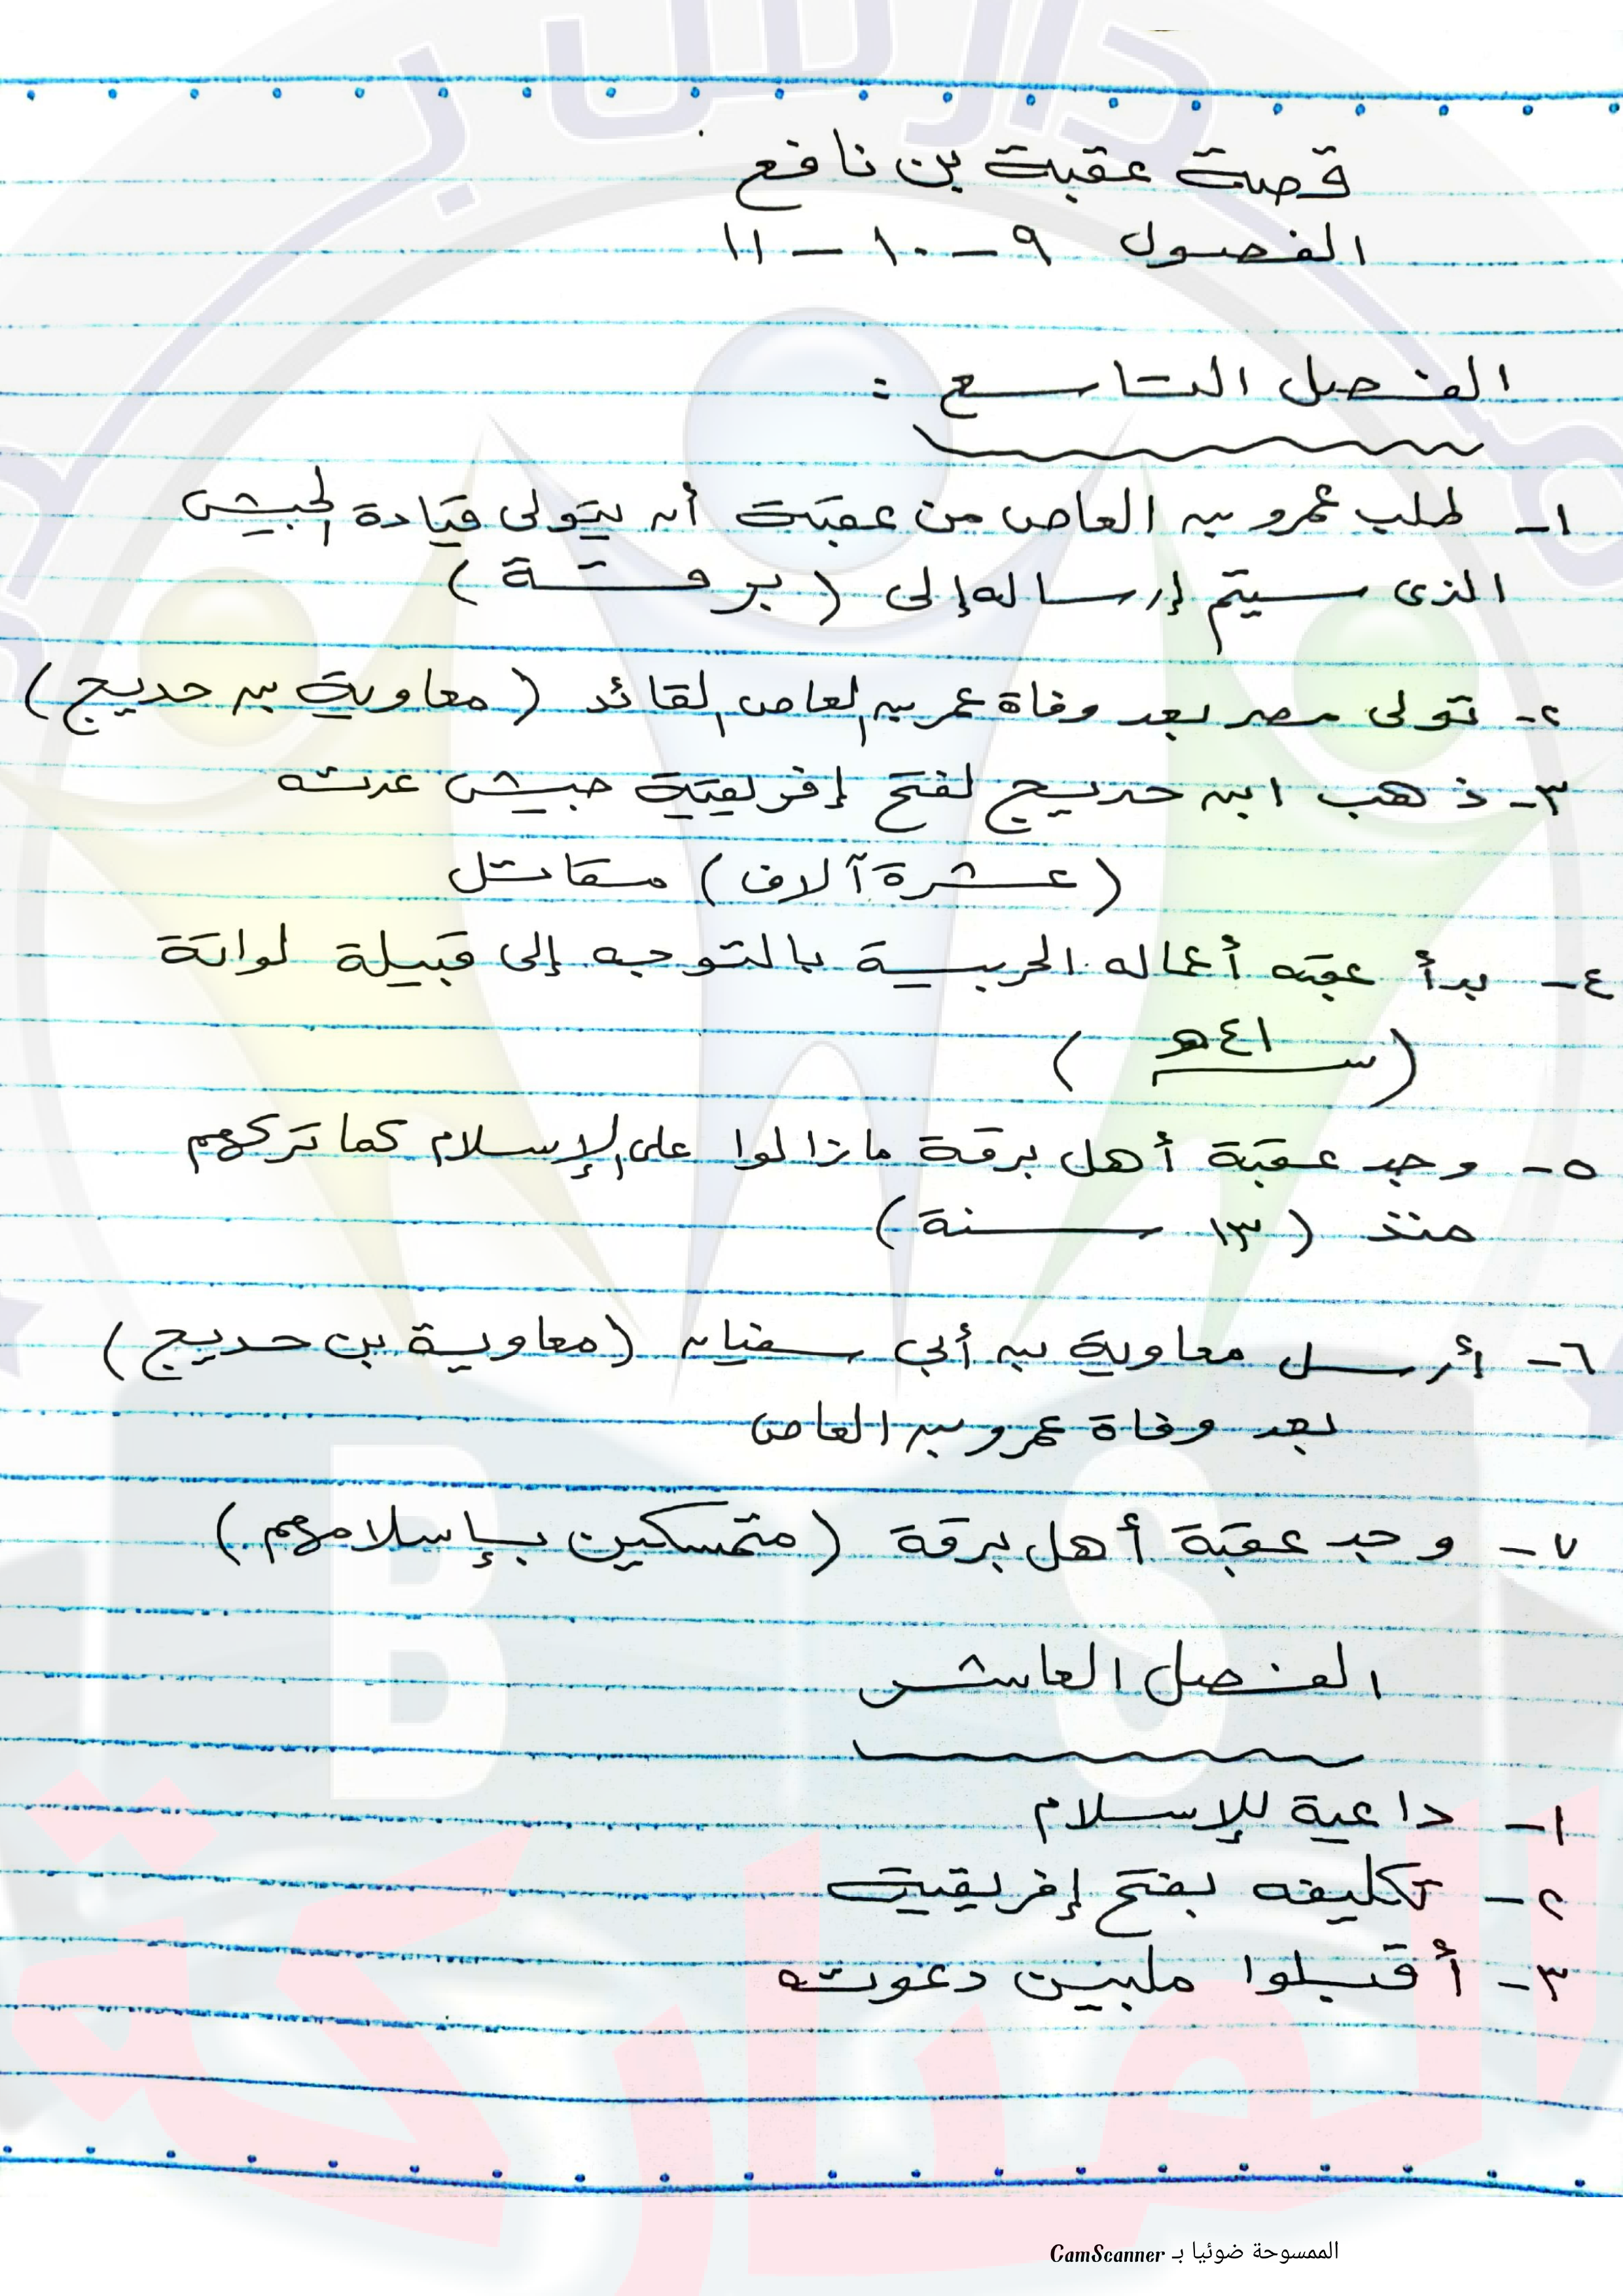 قصة عقبة بن نافع
الفصول ٩ - ١٠ - ١١
الفصل التاسع :
١- طلب عمرو بن العاص من عقبة أن يتولى قيادة الجيش
الذى سيتم إرساله إلى ( برقة )
٢- تولى مصر بعد وفاة عمر بن العاص القائد ( معاوية بن حديج )
٣- ذهب ابن حديج لفتح إفريقية جيش عدته
( عشرة آلاف ) مقاتل
٤- بدأ عقبه أعماله الحربية بالتوجه إلى قبيلة لواتة
( سنة ٤١ هـ )
٥- وجد عقبة أهل برقة مازالوا على الإسلام كما تركهم
منذ ( ١٣ سنة )
٦- أرسل معاوية بن أبي سفيان ( معاوية بن حديج )
بعد وفاة عمرو بن العاص
٧- وجد عقبة أهل برقة ( متمسكين بإسلامهم )
الفصل العاشر
١- داعية للإسلام
٢- تكليفه بفتح إفريقية
٣- أقبلوا ملبين دعوته
B S
الممسوحة ضوئيا بـ CamScanner